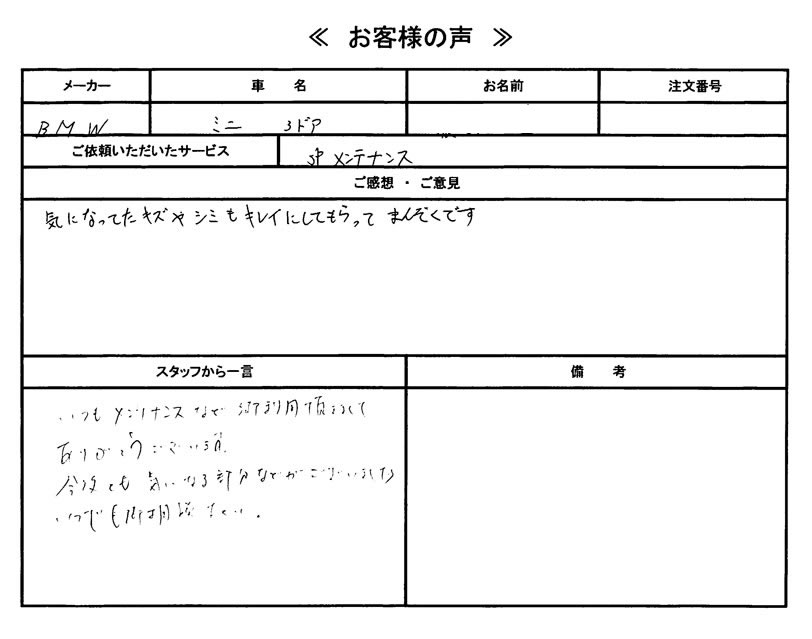 ≪ お客様の声 ≫
メーカー 車 名 お名前 注文番号
BMW ミニ 3ドア
ご依頼いただいたサービス SP メンテナンス
ご感想 ・ ご意見
気になってたキズやシミもキレイにしてもらって まんぞくです
スタッフから一言 備 考
いつも メンテナンスなど ご利用頂きまして
ありがとうございます。
今後とも 気になる部分などがございましたら
いつでも御相談 下さい。